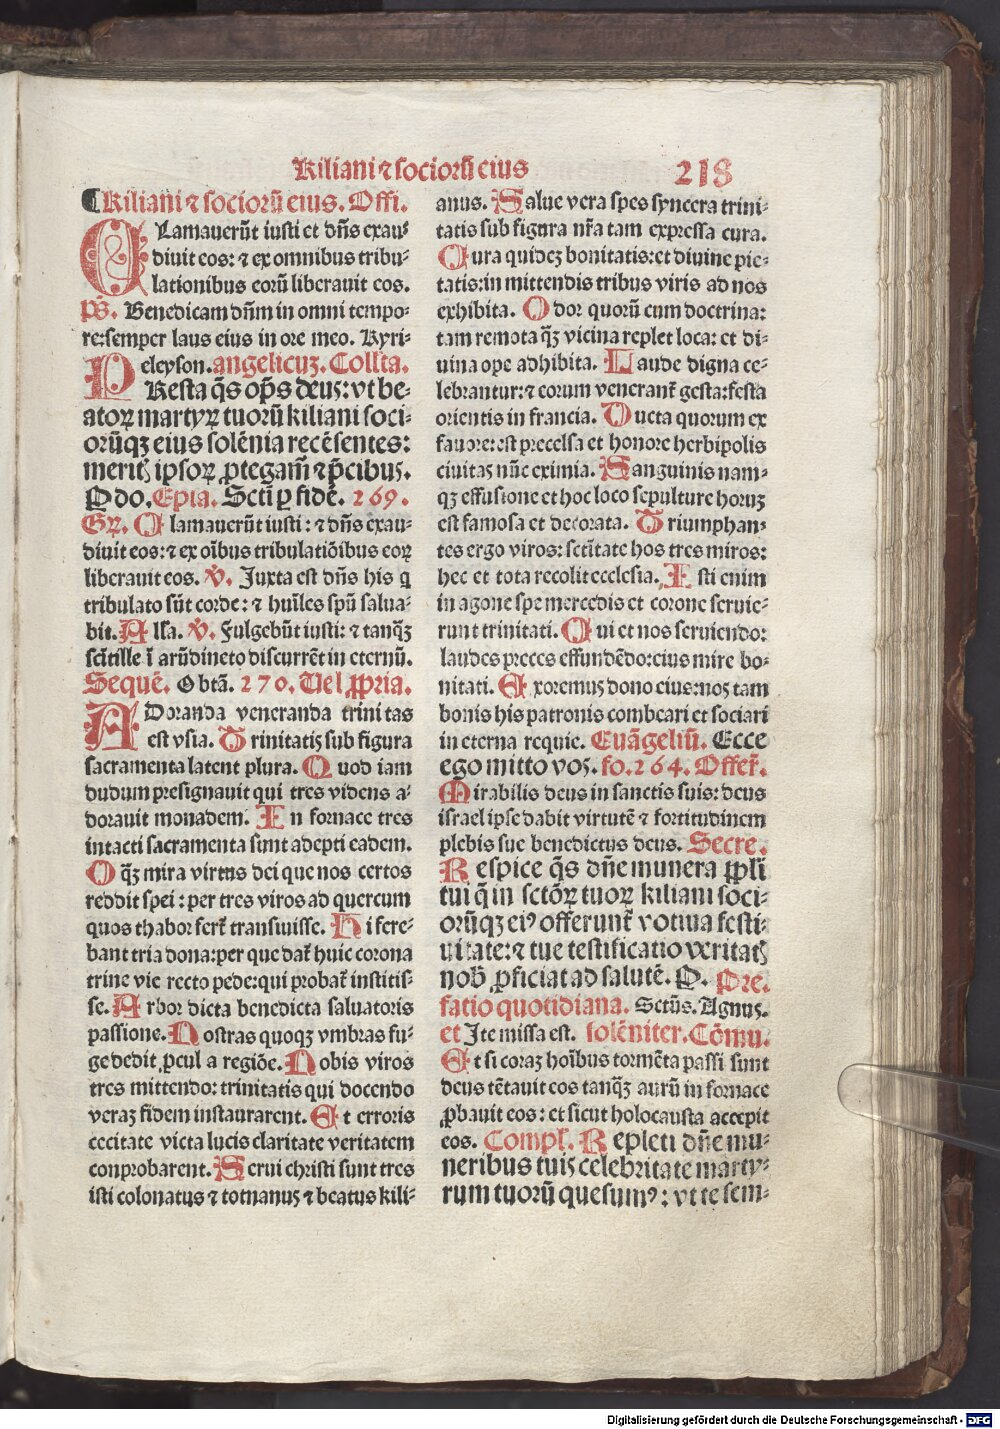 Kiliani ⁊ socioꝝ eius 218
¶Kiliani ⁊ socioꝛū eius. Offi.
CLamauerūt iusti et dn̄s exau-
diuit eos: ⁊ ex omnibus tribu-
lationibus eoꝛū liberauit eos.
Ps̄. Benedicam dn̄m in omni tempo-
re: semper laus eius in ore meo. Kyri-
eleyson. angelicuꝫ. Collta.
PResta q̄s op̄s deus: vt be-
atoꝝ martyꝝ tuoꝛū kiliani soci-
oꝛūqꝫ eius solēnia recēsentes:
meritꝭ ipsoꝝ ꝓtegam̄ ⁊ p̄cibus.
P do. Epia. Sctī ꝑ fidē. 269.
Gꝝ. Clamauerūt iusti: ⁊ dn̄s exau-
diuit eos: ⁊ ex oībus tribulatiōibus eoꝝ
liberauit eos. V̇. Juxta est dn̄s his q
tribulato sūt corde: ⁊ hūiles spū salua-
bit. Alla. V̇. Fulgebūt iusti: ⁊ tanqꝫ̄
scītille ī arūdineto discurrēt in eternū.
Sequē. Obtā. 270. Uel ꝓpria.
ADoranda veneranda trinitas
est vsia. Trinitatis sub figura
sacramenta latent plura. Quod iam
dudum presignauit qui tres videns a-
dorauit monadem. En fornace tres
intacti sacramenta sunt adepti eadem.
O qꝫ̄ mira virtus dei que nos certos
reddit spei: per tres viros ad quercum
quos thabor fert̄ transiuisse. Hi fere-
bant tria dona: per que dat̄ huic corona
trine vie recto pede: qui probat̄ institis-
se. Arbor dicta benedicta saluatoris
passione. Nostras quoqꝫ vmbras fu-
ge dedit ꝓcul a regiōe. Nobis viros
tres mittendo: trinitatis qui docendo
veraꝫ fidem instaurarent. Et erroris
cecitate victa lucis claritate veritatem
conprobarent. Serui christi sunt tres
isti colonatus ⁊ totnanus ⁊ beatus kili-
anus. Salue vera spes syncera trini-
tatis sub figura nr̄a tam expressa cura.
Cura quideꝫ bonitatis: et diuine pie-
tatis: in mittendis tribus viris ad nos
exhibita. Odor quorū cum doctrina:
tam remota qꝫ̄ vicina replet loca: et di-
uina ope adhibita. Laude digna ce-
lebrantur: ⁊ eorum venerant̄ gesta: festa
orientis in francia. Ducta quorum ex
fauore: est precelsa et honore herbipolis
ciuitas nūc eximia. Sanguinis nam-
qꝫ effusione et hoc loco sepulture horuꝫ
est famosa et decorata. Triumphan-
tes ergo viros: sctītate hos tres miros:
hec et tota recolit ecclesia. Isti enim
in agone spe mercedis et corone seruie-
runt trinitati. Qui et nos seruiendo:
laudes preces effundēdo: eius mire bo-
nitati. Exoremus dono eius: nos tam
bonis his patronis combeari et sociari
in eterna requie. Euāgeliū. Ecce
ego mitto vos. fo. 264. Offer̄.
Mirabilis deus in sanctis suis: deus
israel ipse dabit virtutē ⁊ fortitudinem
plebis sue benedictus deus. Secre.
Respice q̄s dn̄e munera ꝓpl̄i
tui q̄ in sctōꝝ tuoꝝ kiliani soci-
oꝛūqꝫ eiꝰ offerunt̄ votiua festi-
uitate: ⁊ tue testificatio veritatꝭ
nob̄ ꝓficiat ad salutē. P. Pre-
fatio quotidiana. Sctūs. Agnus.
et Ite missa est. solēniter. Cōmu.
Et si coraꝫ hoībus tormēta passi sunt
deus tētauit eos tanqꝫ̄ aurū in fornace
ꝓbauit eos: et sicut holocausta accepit
eos. Compl̄. Repleti dn̄e mu-
neribus tuis celebritate marty-
rum tuoꝛū quesumꝰ: vt te sem-
Digitalisierung gefördert durch die Deutsche Forschungsgemeinschaft - DFG